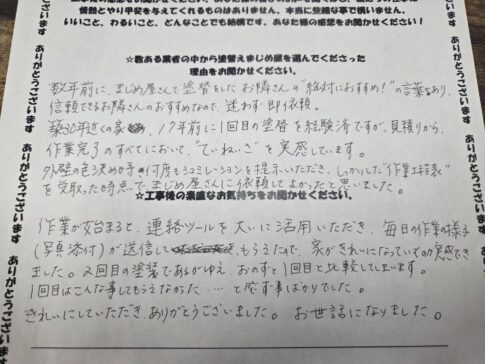 情熱とやり甲斐を与えてくれるものはありません。本当に些細な事で構いません。
いいこと、わるいこと、どんなことでも結構です。あなた様の感想をお聞かせください!
★数ある業者の中から塗替えまじめ屋を選んでくださった
理由をお聞かせください。
数年前に、まじめ屋さんで塗替をしたお隣さんの"絶対におすすめ!"の言葉もあり、
信頼できるお隣さんのおすすめなので、迷わず即依頼。
築30年近くの家、17年前に1回目の塗替を経験済ですが、見積りから、
作業完了のすべてにおいて、"ていねいさ"を実感しています。
外壁の色決め等、何度もシュミレーションを提示いただき、しっかりした"作業工程表"
を受取った時点で、まじめ屋さんに依頼してよかったと思いました。
★工事後の素直なお気持ちをお聞かせください。
作業が始まると、連絡ツールを大いに活用いただき、毎日の作業の様子
(写真添付)が送信してもらえたので、家がきれいになっていくのが実感でき
ました。2回目の塗装であるがゆえ、おのずと1回目と比較してしまいます。
1回目はこんな事してもらえなかった……と感ず事ばかりでした。
きれいにしていただき、ありがとうございました。お世話になりました。
ありがとうございます ありがとうございます
ありがとうございます ありがとうございます